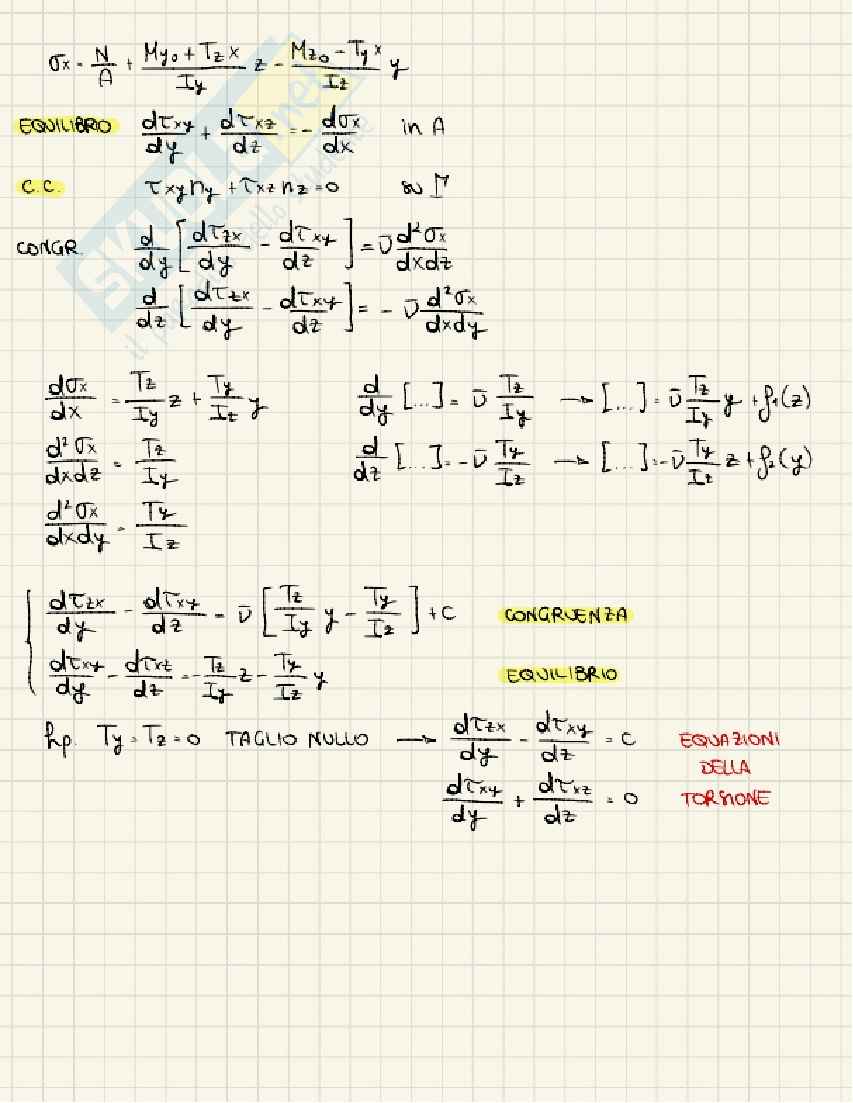 σx = N/A + (My₀ + Tz x)/Iy z - (Mz₀ - Ty x)/Iz y
EQUILIBRO dτxy/dy + dτxz/dz = - dσx/dx in A
C.C. τxy ny + τxz nz = 0 su Γ
CONGR. d/dy [dτzx/dy - dτxy/dz] = ν̄ d²σx/dxdz
d/dz [dτzx/dy - dτxy/dz] = - ν̄ d²σx/dxdy
dσx/dx = Tz/Iy z + Ty/Iz y d/dy [...] = ν̄ Tz/Iy → [...] = ν̄ Tz/Iy y + f₁(z)
d²σx/dxdz = Tz/Iy d/dz [...] = -ν̄ Ty/Iz → [...] = -ν̄ Ty/Iz z + f₂(y)
d²σx/dxdy = Ty/Iz
{ dτzx/dy - dτxy/dz = ν̄ [Tz/Iy y - Ty/Iz] + C CONGRUENZA
dτxy/dy - dτxz/dz = - Tz/Iy z - Ty/Iz y EQUILIBRIO
hp. Ty = Tz = 0 TAGLIO NULLO → dτzx/dy - dτxy/dz = C EQUAZIONI
DELLA
dτxy/dy + dτxz/dz = 0 TORSIONE